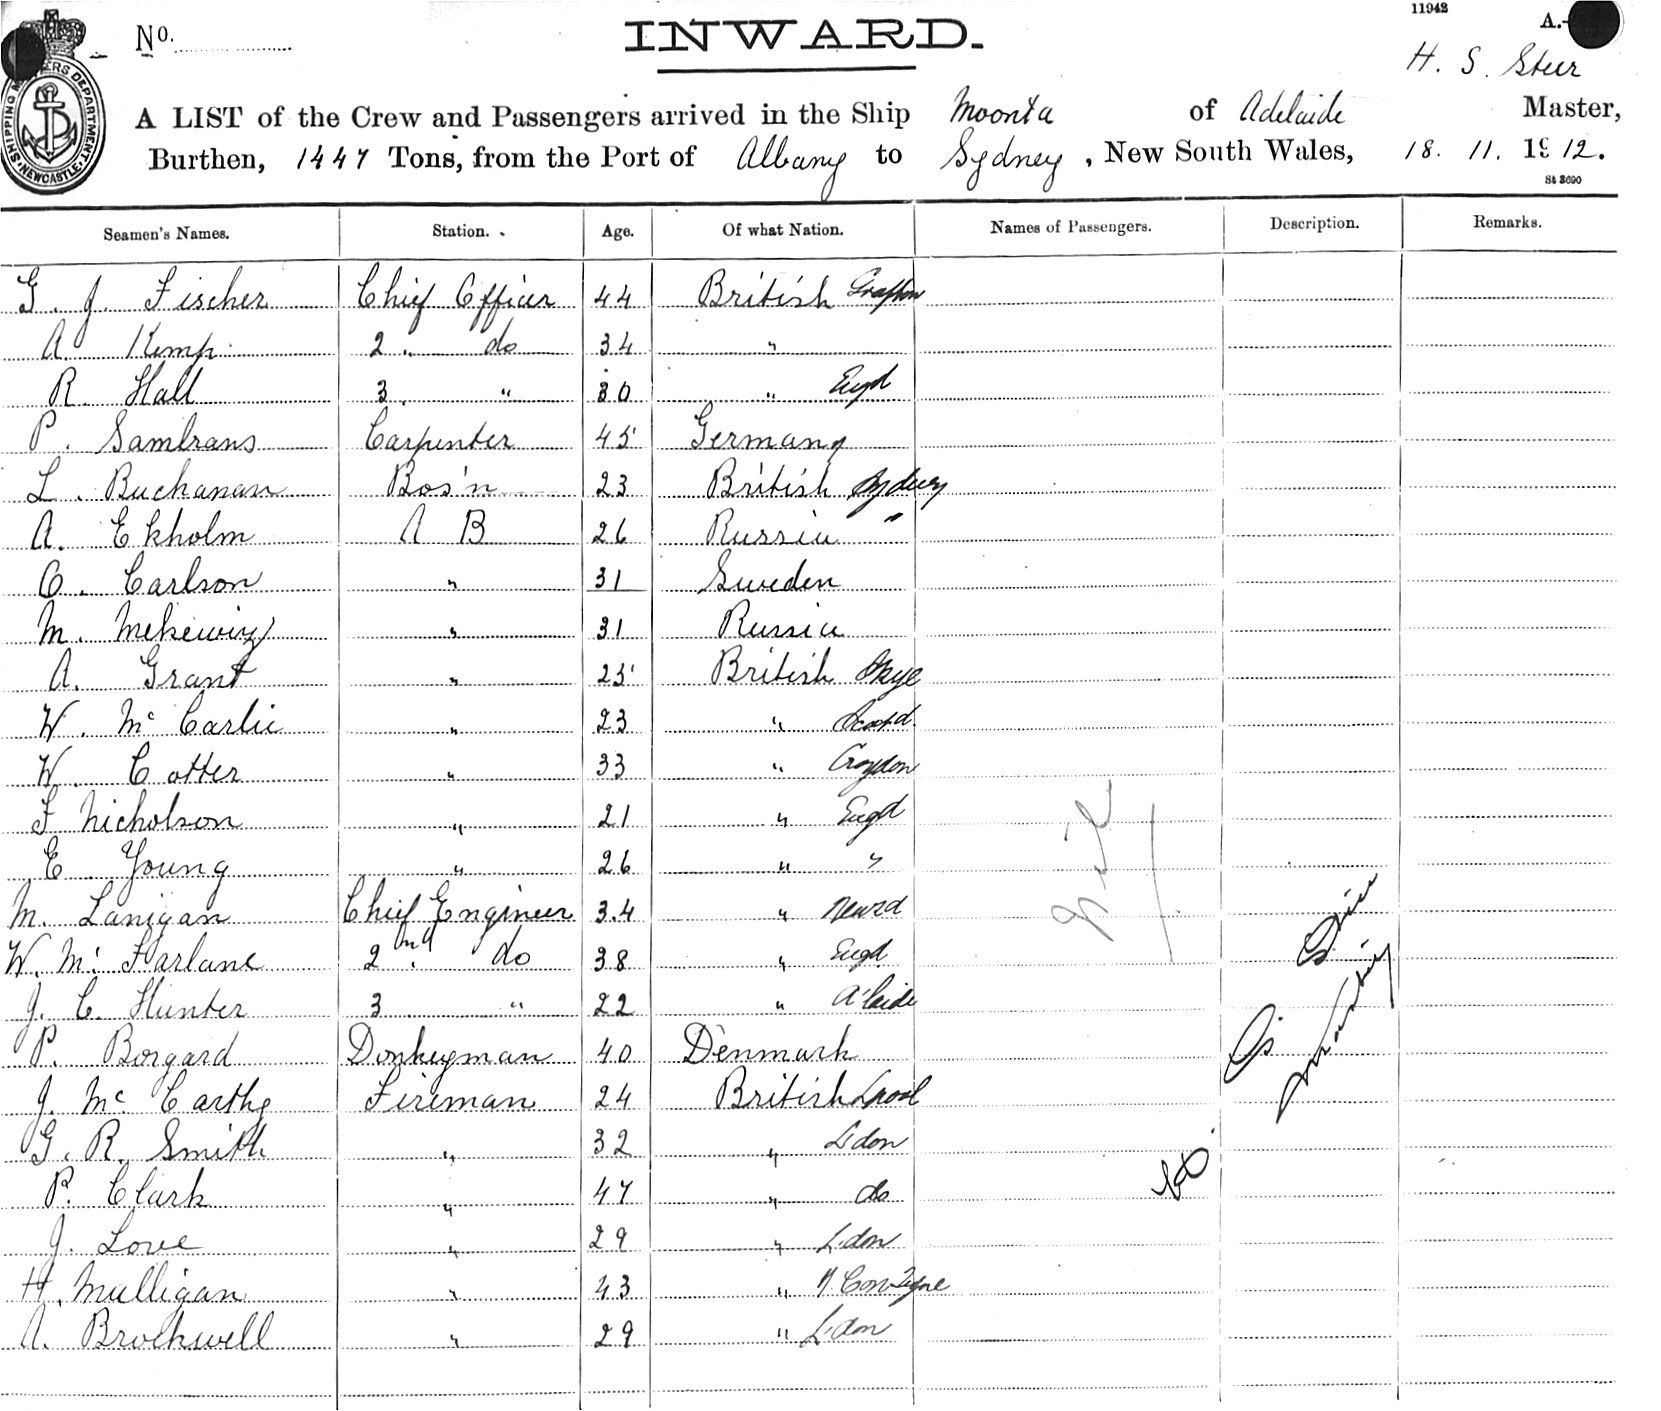 11942
No. INWARD. A.-
H. S. Steer
A LIST of the Crew and Passengers arrived in the Ship Moonta of Adelaide Master,
Burthen, 1447 Tons, from the Port of Albany to Sydney, New South Wales, 18. 11. 1912.
St 3690
SHIPPING MASTERS DEPARTMENT. NEWCASTLE.
Seamen's Names. Station. Age. Of what Nation. Names of Passengers. Description. Remarks.
G. J. Fischer Chief Officer 44 British Grafton
A Kemp 2 do 34 "
R. Hall 3. " 30 " Engd
P. Sambrans Carpenter 45 Germany
L. Buchanan Bos'n 23 British Sydney
A. Ekholm A B 26 Russia "
O. Carlson " 31 Sweden
M. " 31 Russia
A. Grant " 25 British Skye
W. Mc Carlie " 23 " Scotd
W. Cotter " 33 " Croydon
F Nicholson " 21 " Engd
E Young " 26 " "
M. Lanigan Chief Engineer 34 "
W. Mc Farlane 2nd do 38 " Engd
J. C. Hunter 3 " 22 " A'laide
P. Borgard Donkeyman 40 Denmark
J. Mc Carthy Fireman 24 British Lpool
G. R. Smith " 32 " L'don
P. Clark " 47 " do
J. Love " 29 " L'don
H. Mulligan " 43 "
A. Brockwell " 29 " L'don